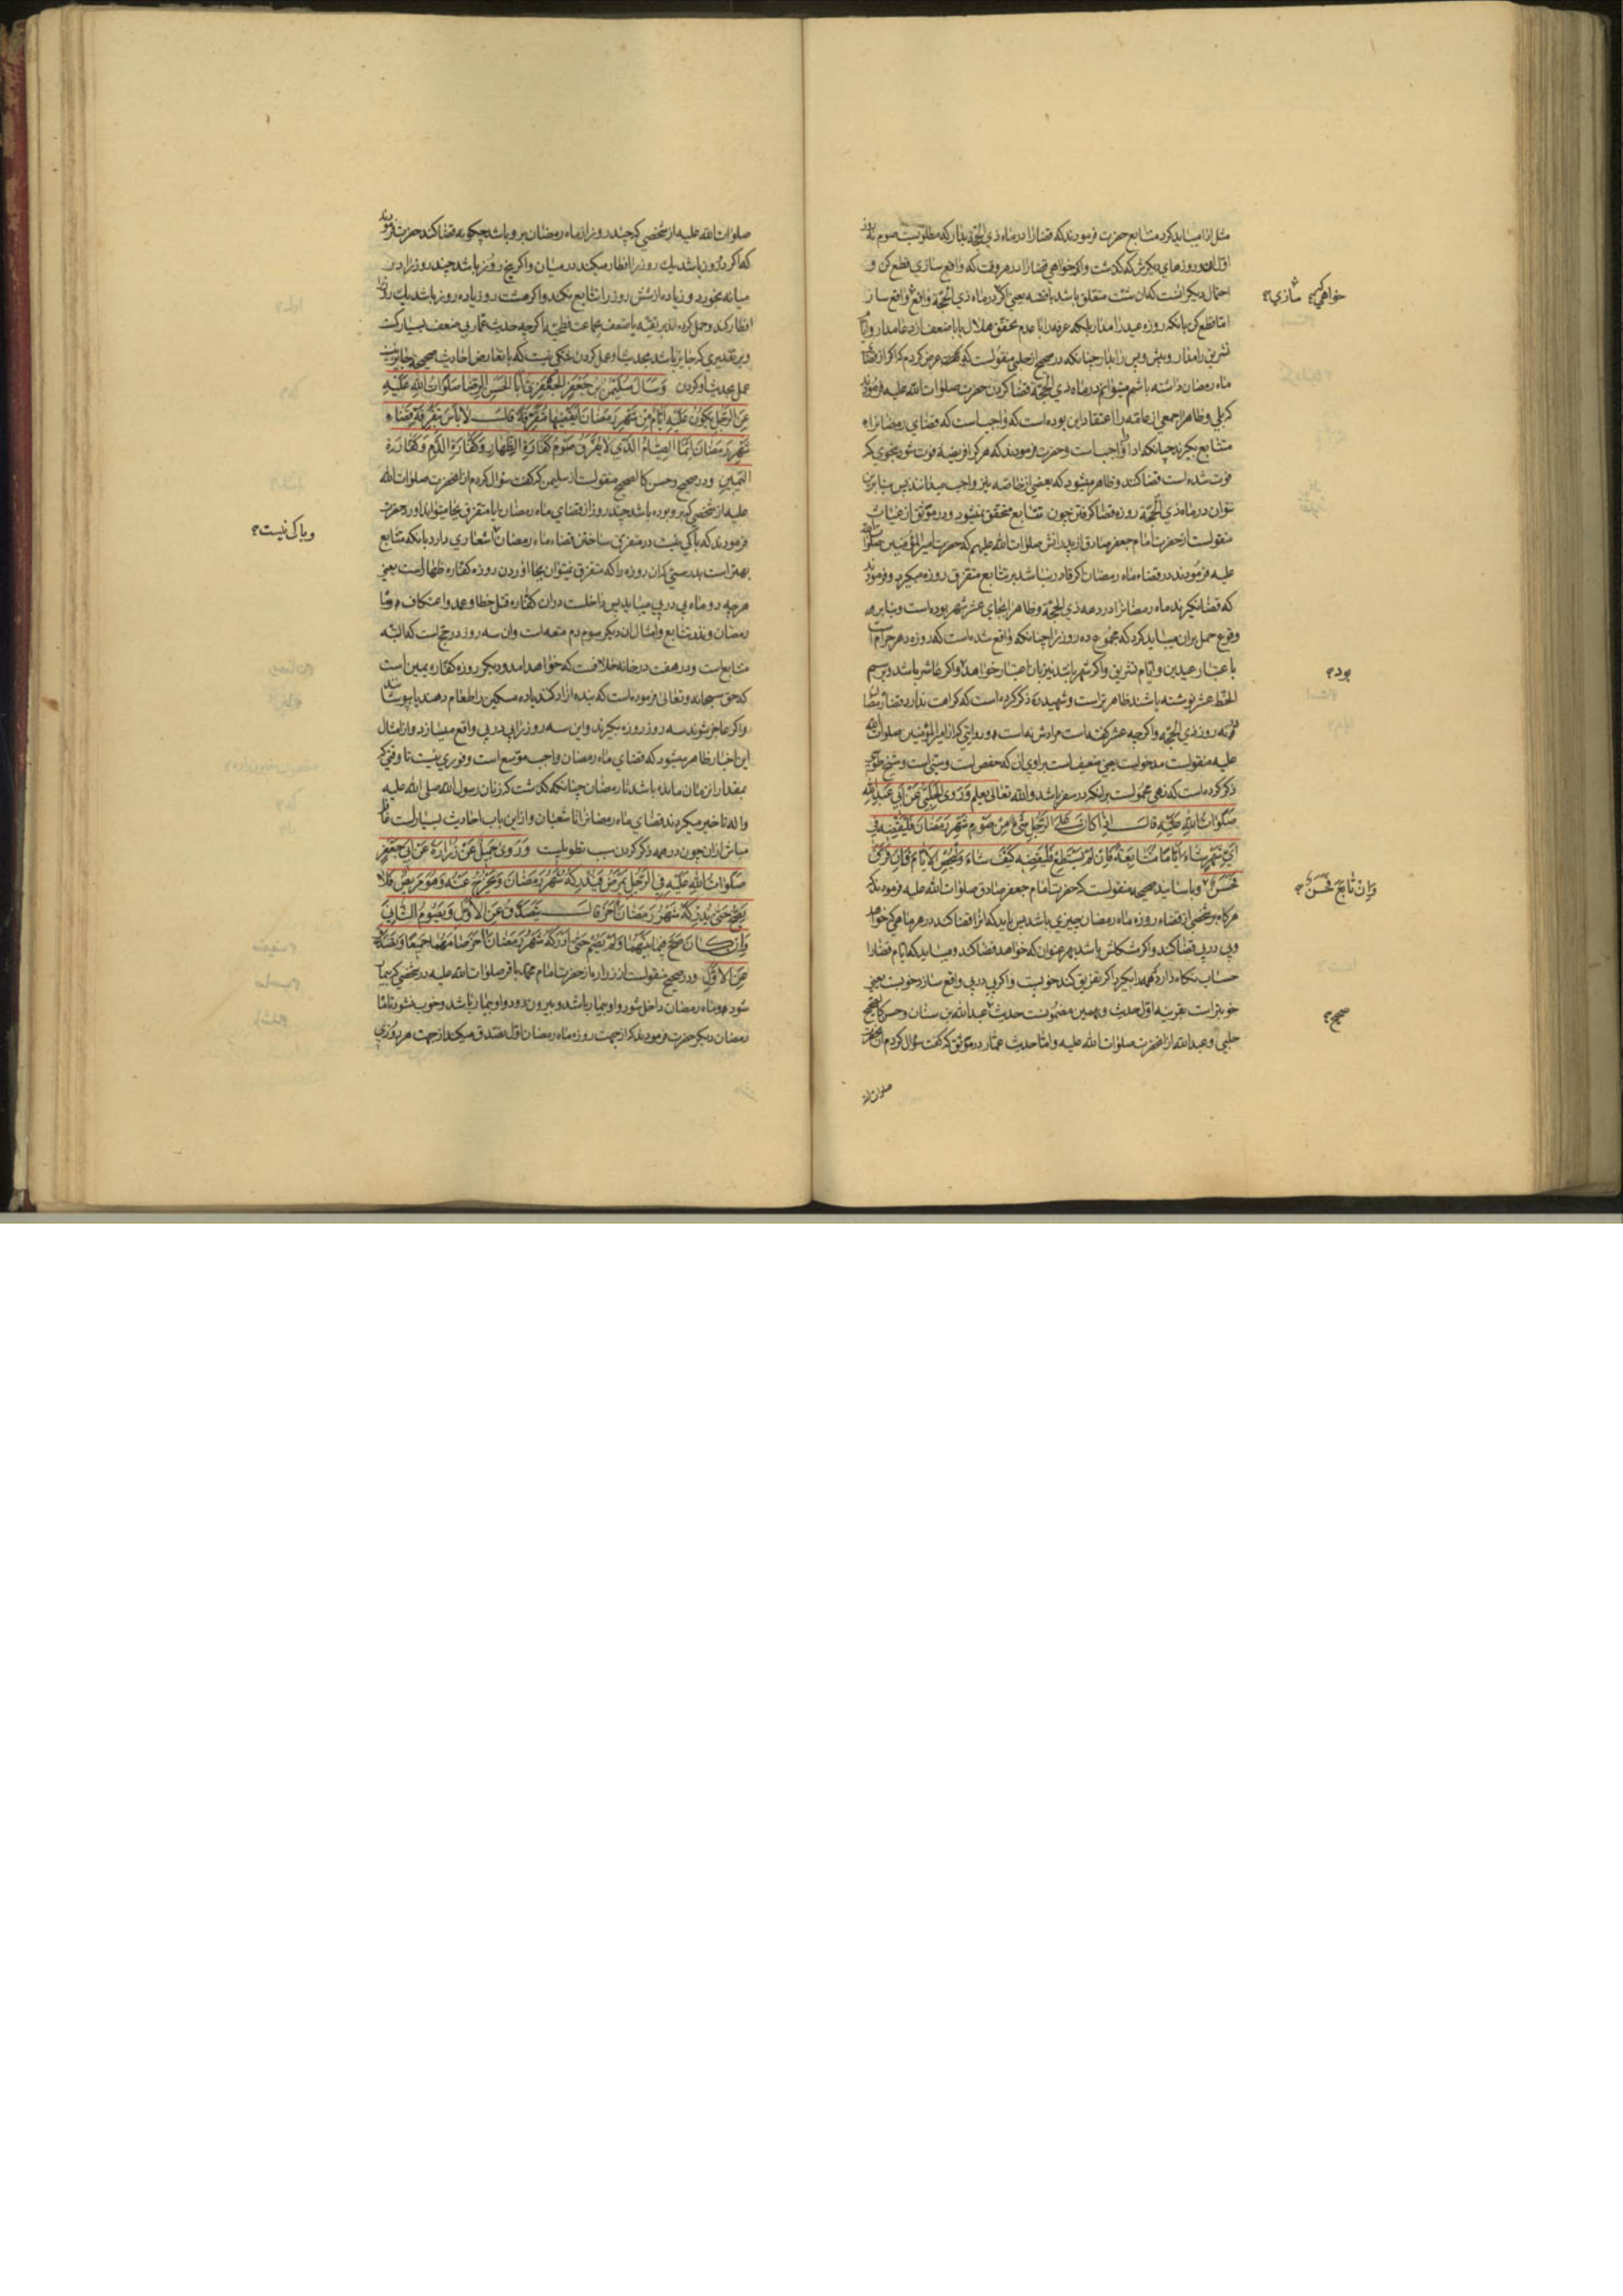 مثل اداء میباید کرد متتابع حضرت فرمودند که قضا را در ماه ذی الحجه بدار که مطلوبیت صوم نه روز
اول ان و روزهای دیکرش که کذشت واکر خواهی قضا را در هر وقت که واقع سازی قطع کن و
احتمال دیکر انست که ان شئت متعلق باشد باقضه یعنی اکر در ماه ذی الحجه واقع واقع ساز
اما قطع کن بانکه روزه عید را مدار بلکه عرفه را با عدم تحقق هلال یا با ضعف از دعا مدار و ایام
تشریق را مدار و پیش و پس را بدار چنانکه در صحیح از حلبی منقولست که کفت عرض کردم که اکر از قضاء
ماه رمضان داشته باشم میتوانم در ماه ذی الحجه قضا کردن حضرت صلوات الله علیه فرمودند
که بلی و ظاهرا جمعی از عامه را اعتقاد این بوده است که واجب است که قضای رمضانرا
متتابع بکیرند چنانکه ادا واجب است و حضرت فرمودند که هر کرا فریضه فوت شود بنحوی که
فوت شده است قضا کند و ظاهر میشود که بعضی از خاصه نیز واجب میدانند پس بنابرین
نتوان در ماه ذی الحجه روزه قضا کرفتن چون تتابع متحقق نمیشود و در موثق از غیاث
منقولست از حضرت امام جعفر صادق از پدرانش صلوات الله علیهم که حضرت امیر المؤمنین صلوات الله
علیه فرمودند در قضاء ماه رمضان اکر قادر نباشد بر تتابع متفرق روزه میکیرد و فرمودند
که قضا نکیرند ماه رمضانرا در دهه ذی الحجه و ظاهرا بجای عشر شهر بوده است و بنابر
وقوع حمل بران میباید کرد که مجموع ده روز را چنانکه واقع شده است که روزه دهم حرام است
با عتبار عیدین و ایام تشریق واکر شهر باشد نیز بان اعتبار خواهد واکر عاشر باشد و برسم
الخط عشر نوشته باشند ظاهرتر است و شهید ره ذکر کرده است که کراهت ندارد قضاء رمضان
در نه روز ذی الحجه واکرچه عشر کفته است مرادش نه است و روایتی که از امیر المؤمنین صلوات الله
علیه منقولست مدخولست یعنی ضعیف است براوی ان که حفص است و سنی است و شیخ طوسی
ذکر کرده است که نهی محمولست بر انکه در سفر باشد والله تعالی یعلم وَرَوَی الحَلَبِیُّ عَنْ اَبی عَبْدِ اللّٰهِ
صَلَوَاتُ اللّٰهِ عَلَیْهِ قالَ اِذا کَانَ عَلَی الرَّجُلِ شَیْءٌ مِنْ صَوْمِ شَهْرِ رَمَضانَ فَلْیَقْضِهِ فِی
اَیِّ شَهْرٍ شاءَ اَیّامًا مُتَتابِعَةً فَاِنْ لَمْ یَسْتَطِعْ فَلْیَقْضِهِ کَیْفَ شاءَ وَلْیُحْصِ الْاَیّامَ فَاِنْ فَرَّقَ
فَحَسَنٌ و باسانید صحیحه منقولست که حضرت امام جعفر صادق صلوات الله علیه فرمودند که
هرکاه بر شخصی از قضاء روزه ماه رمضان چیزی باشد پس باید که انرا قضا کند در هر ماهی که خواهد
و پی در پی قضا کند واکر مشکلش باشد بهر عنوان که خواهد قضا کند و میباید که ایام قضا را
حساب نکاه دارد که همه را بکیرد اکر تفریق کند خوبست و اکر پی در پی واقع سازد خوبست یعنی
خوبتر است بقرینه اول حدیث و بهمین مضمونست حدیث عبدالله بن سنان و حسن کالصحیح
حلبی و عبدالله از انحضرت صلوات الله علیه و اما حدیث عمار در موثق که کفت سؤال کردم از انحضرت
صلوات الله
خواهی که سازی
بود
وَاِنْ تابَعَ فَحَسَنٌ
صحیح
صلوات الله علیه از شخصی که چند روز از ماه رمضان بر او باشد چکونه قضا کند حضرت فرمودند
که اکر دو روز باشد یك روز را افطار میکند در میان و اکر پنج روز باشد چند روز را در
میانه بخورد و زیاده از شش روز را تتابع نکند واکر هشت روز یا ده روز باشد یك روز را
افطار کند و حمل کرده‌اند بر تقیه با ضعف جماعت فطحیه اکرچه حدیث عمار بی ضعف بسیار است
و بر تقدیری که جایز باشد بحدیث او عمل کردن شکی نیست که با تعارض احادیث صحیحه جایز نیست
عمل بحدیث او کردن وَسَأَلَ سُلَیْمٰنُ بْنُ جَعْفَرٍ الْجَعْفَرِیُّ اَبَا الْحَسَنِ الرِّضَا صَلَوَاتُ اللّٰهِ عَلَیْهِ
عَنِ الرَّجُلِ یَکُونُ عَلَیْهِ اَیّامٌ مِنْ شَهْرِ رَمَضانَ اَیَقْضِیها مُتَفَرِّقَةً قالَ لا بَأْسَ بِتَفْرِقَةِ قَضاءِ
شَهْرِ رَمَضانَ اِنَّمَا الصِّیامُ الَّذی لا یُفَرَّقُ صَوْمُ کَفّارَةِ الظِّهارِ وَکَفّارَةِ الدَّمِ وَکَفّارَةِ
الْیَمینِ و در صحیح و حسن کالصحیح منقولست از سلیمن که کفت سؤال کردم از انحضرت صلوات الله
علیه از شخصی که بر او بوده باشد چند روز از قضای ماه رمضان ایا متفرق بجا میتواند اورد حضرت
فرمودند که باکی نیست در متفرق ساختن قضاء ماه رمضان اشعاری دارد بانکه متتابع
بهتر است بدرستی که ان روزه را که متفرق نمیتوان بجا اوردن روزه کفاره ظهار است یعنی
هرچه دو ماه پی در پی میباید پس داخلست دران کفاره قتل خطا و عمد و اعتکاف و
رمضان و نذر تتابع و امثال ان دیکر صوم دم متعه است وان سه روز در حج است که البته
متتابع است و در هفت در خانه خلافست که خواهد امد و دیکر روزه کفاره یمین است
که حق سبحانه و تعالی فرموده است که بنده ازاد کند یا ده مسکین را طعام دهند یا بپوشانند
واکر عاجز شوند سه روز روزه بکیرند و این سه روز را پی در پی واقع میسازد و از امثال
این اخبار ظاهر میشود که قضای ماه رمضان واجب موسع است و فوری نیست تا وقتی که
بمقدار ان زمان مانده باشد تا رمضان چنانکه کذشت که زنان رسول الله صلی الله علیه
واله تاخیر میکردند قضای ماه رمضانرا تا شعبان و ازین باب احادیث بسیار است
چون در همه ذکر کردن سبب تطویلست وَرَوَی جَمیلٌ عَنْ زُرارَةَ عَنْ اَبی جَعْفَرٍ
صَلَوَاتُ اللّٰهِ عَلَیْهِ فِی الرَّجُلِ یَمْرَضُ فَیُدْرِکُهُ شَهْرُ رَمَضانَ وَیَخْرُجُ عَنْهُ وَهُوَ مَریضٌ فَلا
یَصِحُّ حَتّی یُدْرِکَهُ شَهْرُ رَمَضانَ آخَرُ قالَ یَتَصَدَّقُ عَنِ الْاَوَّلِ وَیَصُومُ الثّانِیَ
وَاِنْ کانَ صَحَّ فیما بَیْنَهُما وَلَمْ یَصُمْ حَتّی اَدْرَکَهُ شَهْرُ رَمَضانَ آخَرُ صامَهُما جَمیعًا وَیَتَصَدَّقُ
عَنِ الْاَوَّلِ و در صحیح منقولست از زراره از حضرت امام محمد باقر صلوات الله علیه در شخصی که بیمار
شود و ماه رمضان داخل شود و او بیمار باشد و بیرون رود و او بیمار باشد و خوب نشود تا ماه
رمضان دیکر حضرت فرمودند که از جهت روزه ماه رمضان اول تصدق میکند از جهت هر روزی
و باکی نیست